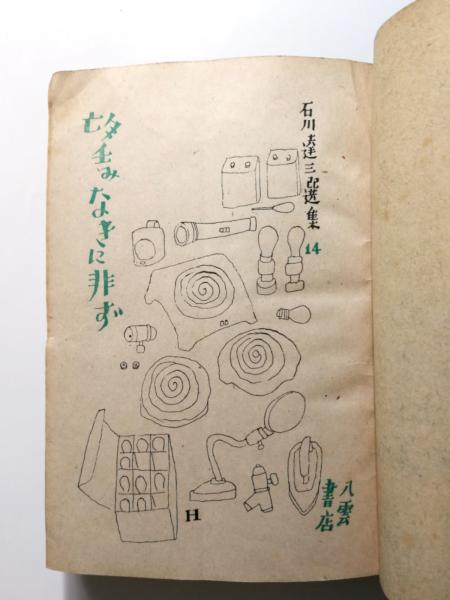 石川達三選集
14
望みなきに非ず
八雲
書店
H